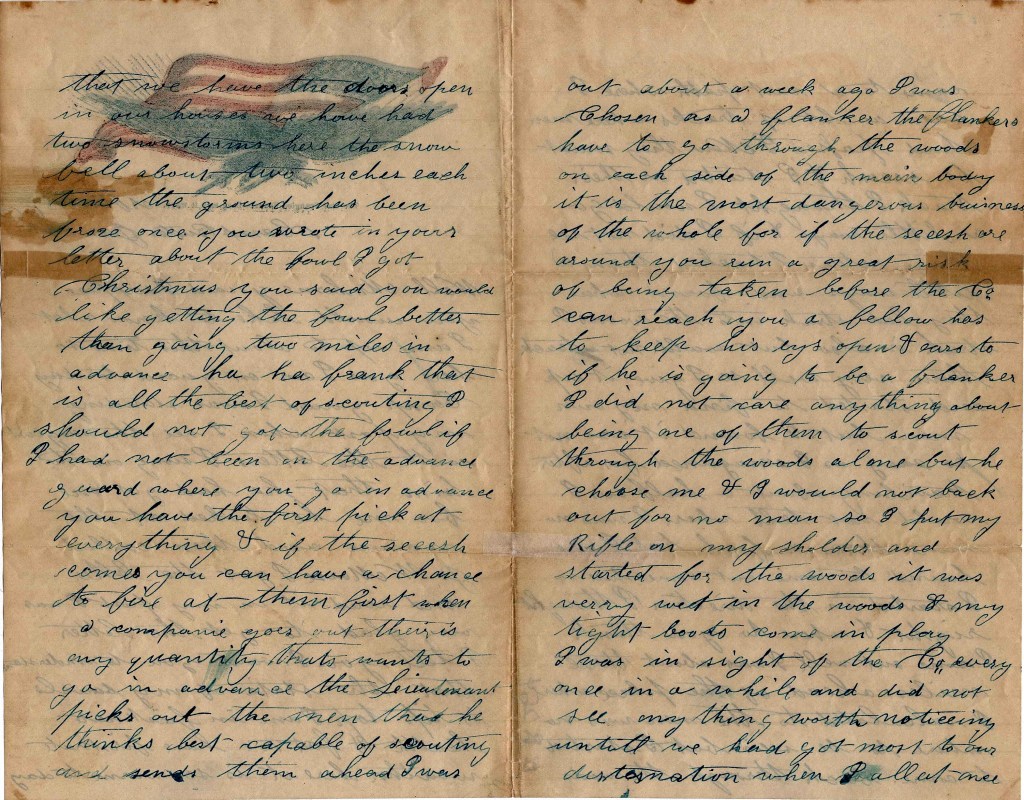 that we have the doors open
in our houses we have had
two snowstorms here the snow
bell about two inches each
time the ground has been
froze once you wrote in your
letter about the fowl I got
Christmus you said you would
like getting the fowl better
than going two miles in
advance ha ha frank that
is all the best of scouting I
should not got the fowl if
I had not been on the advance
guard where you go in advance
you have the first pick at
everything & if the secesh
comes you can have a chance
to fire at them first when
a companie goes out their is
any quantity thats wants to
go in advance the Lieutenant
picks out the men that he
thinks best capable of scouting
and sends them ahead I was
out about a week ago I was
Chosen as a flanker the flankers
have to go through the woods
on each side of the main body
it is the most dangerous buisness
of the whole for if the secesh are
around you run a great risk
of being taken before the Co.
can reach you a fellow has
to keep his eys open & ears to
if he is going to be a flanker
I did not care anything about
being one of them to scout
through the woods alone but he
choose me & I would not back
out for no man so I put my
Rifle on my sholder and
started for the woods it was
verry wet in the woods & my
tight boots come in play
I was in sight of the Co. every
once in a while and did not
see any thing worth noticeing
untill we had got most to our
distornation when I all at once